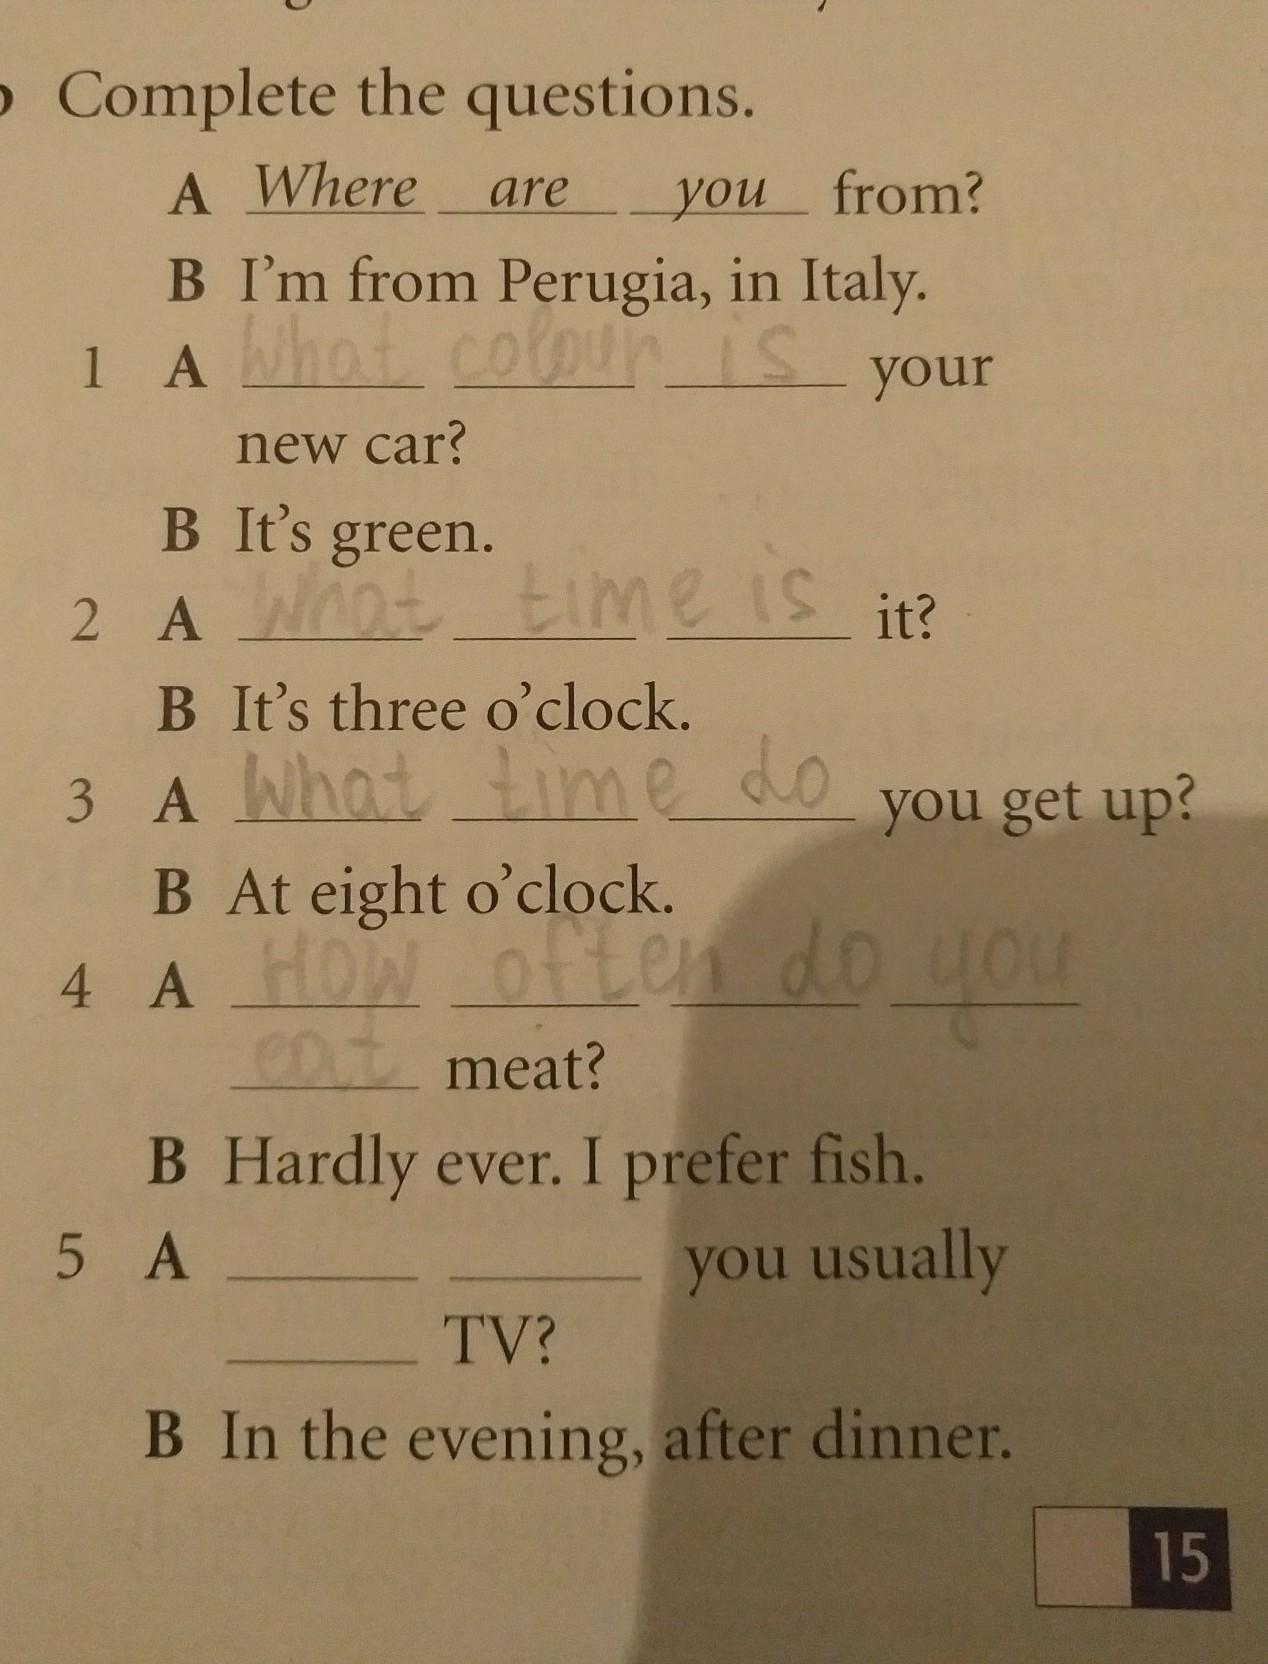 Complete the questions.
A Where are you from?
B I'm from Perugia, in Italy.
1 A What colour is your
new car?
B It's green.
2 A What time is it?
B It's three o'clock.
3 A What time do you get up?
B At eight o'clock.
4 A How often do you
eat meat?
B Hardly ever. I prefer fish.
5 A ______ ______ you usually
______ TV?
B In the evening, after dinner.
15